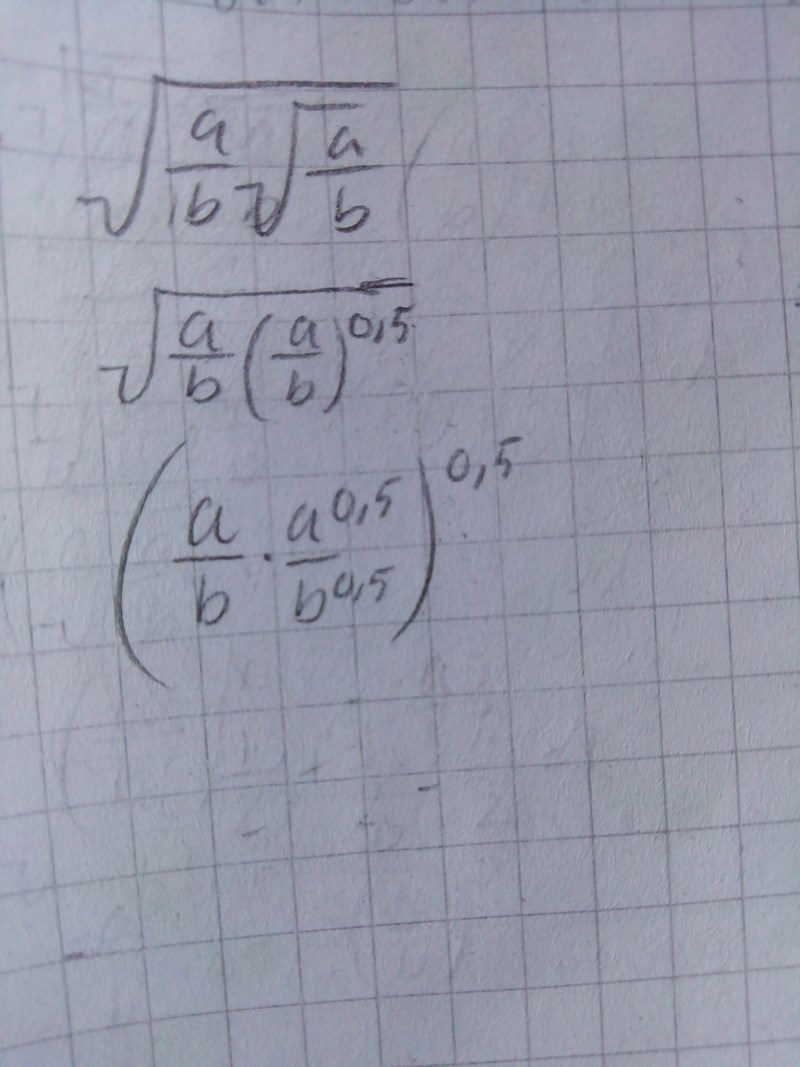 √(a/b √(a/b))
√(a/b (a/b)^0,5)
(a/b · a^0,5/b^0,5)^0,5